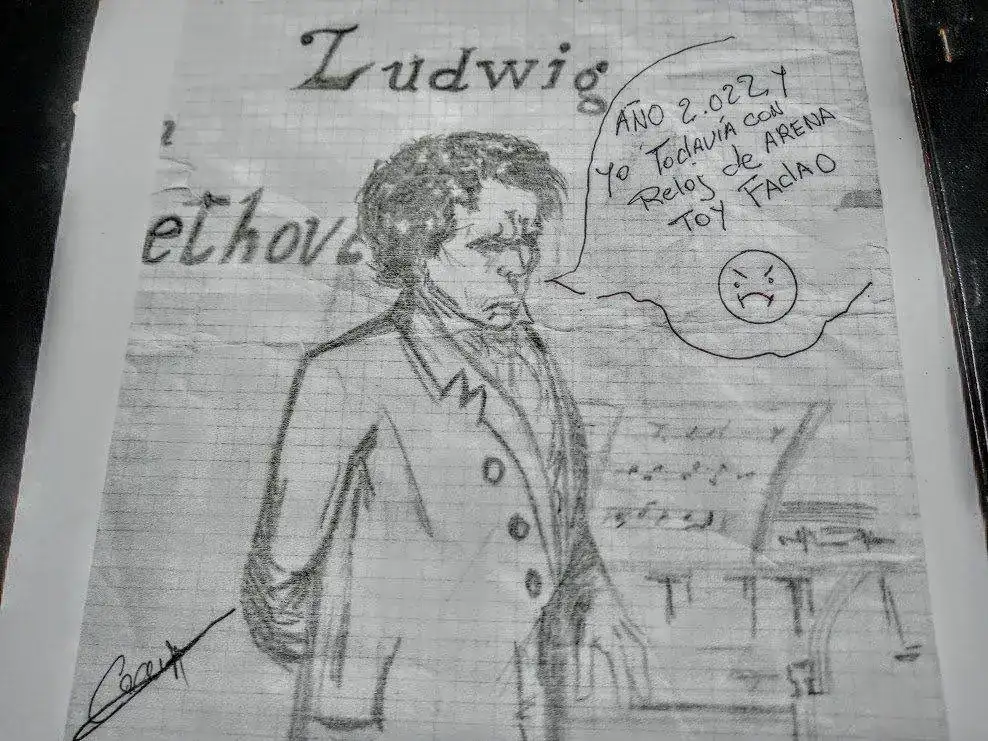 Ludwig
ethove
AÑO 2.022, Y
YO TodAVÍA CON
Reloj de ARENA
TOY FAdAO